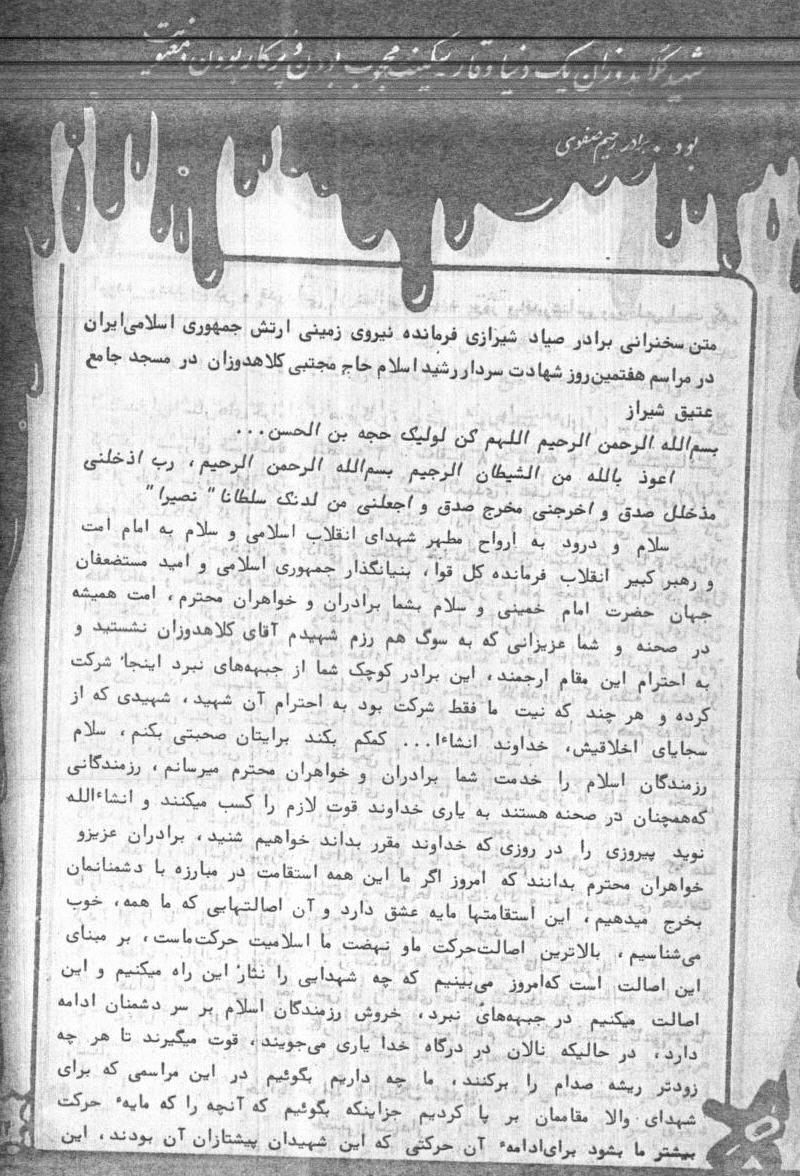 شهید کلاهدوزان یک دنیا وقار سکینت محجوب بودن و پرکار بودن و معنویت
بود. برادر رحیم صفوی
متن سخنرانی برادر صیاد شیرازی فرمانده نیروی زمینی ارتش جمهوری اسلامی‌ایران
در مراسم هفتمین‌روز شهادت سردار رشید اسلام حاج مجتبی کلاهدوزان در مسجد جامع
عتیق شیراز
بسم‌الله الرحمن الرحیم اللهم کن لولیک حجه بن الحسن...
اعوذ بالله من الشیطان الرجیم بسم‌الله الرحمن الرحیم، رب اذخلنی
مذخلل صدق و اخرجنی مخرج صدق و اجعلنی من لدنک سلطانا" نصیرا"
سلام و درود به ارواح مطهر شهدای انقلاب اسلامی و سلام به امام امت
و رهبر کبیر انقلاب فرمانده کل قوا، بنیانگذار جمهوری اسلامی و امید مستضعفان
جهان حضرت امام خمینی و سلام بشما برادران و خواهران محترم، امت همیشه
در صحنه و شما عزیزانی که به سوگ هم رزم شهیدم آقای کلاهدوزان نشستید و
به احترام این مقام ارجمند، این برادر کوچک شما از جبهه‌های نبرد اینجا شرکت
کرده و هر چند که نیت ما فقط شرکت بود به احترام آن شهید، شهیدی که از
سجایای اخلاقیش، خداوند انشاءا... کمکم بکند برایتان صحبتی بکنم، سلام
رزمندگان اسلام را خدمت شما برادران و خواهران محترم میرسانم، رزمندگانی
که‌همچنان در صحنه هستند به یاری خداوند قوت لازم را کسب میکنند و انشاءالله
نوید پیروزی را در روزی که خداوند مقرر بداند خواهیم شنید، برادران عزیزو
خواهران محترم بدانند که امروز اگر ما این همه استقامت در مبارزه با دشمنانمان
بخرج میدهیم، این استقامتها مایه عشق دارد و آن اصالتهایی که ما همه، خوب
می‌شناسیم، بالاترین اصالت‌حرکت ماو نهضت ما اسلامیت حرکت‌ماست، بر مبنای
این اصالت است که‌امروز می‌بینیم که چه شهدایی را نثار این راه میکنیم و این
اصالت میکنیم در جبهه‌های نبرد، خروش رزمندگان اسلام بر سر دشمنان ادامه
دارد، در حالیکه نالان در درگاه خدا یاری می‌جویند، قوت میگیرند تا هر چه
زودتر ریشه صدام را برکنند، ما چه داریم بگوئیم در این مراسمی که برای
شهدای والا مقاممان بر پا کردیم جزاینکه بگوئیم که آنچه را که مایهٔ حرکت
بیشتر ما بشود برای‌ادامهٔ آن حرکتی که این شهیدان پیشتازان آن بودند، این